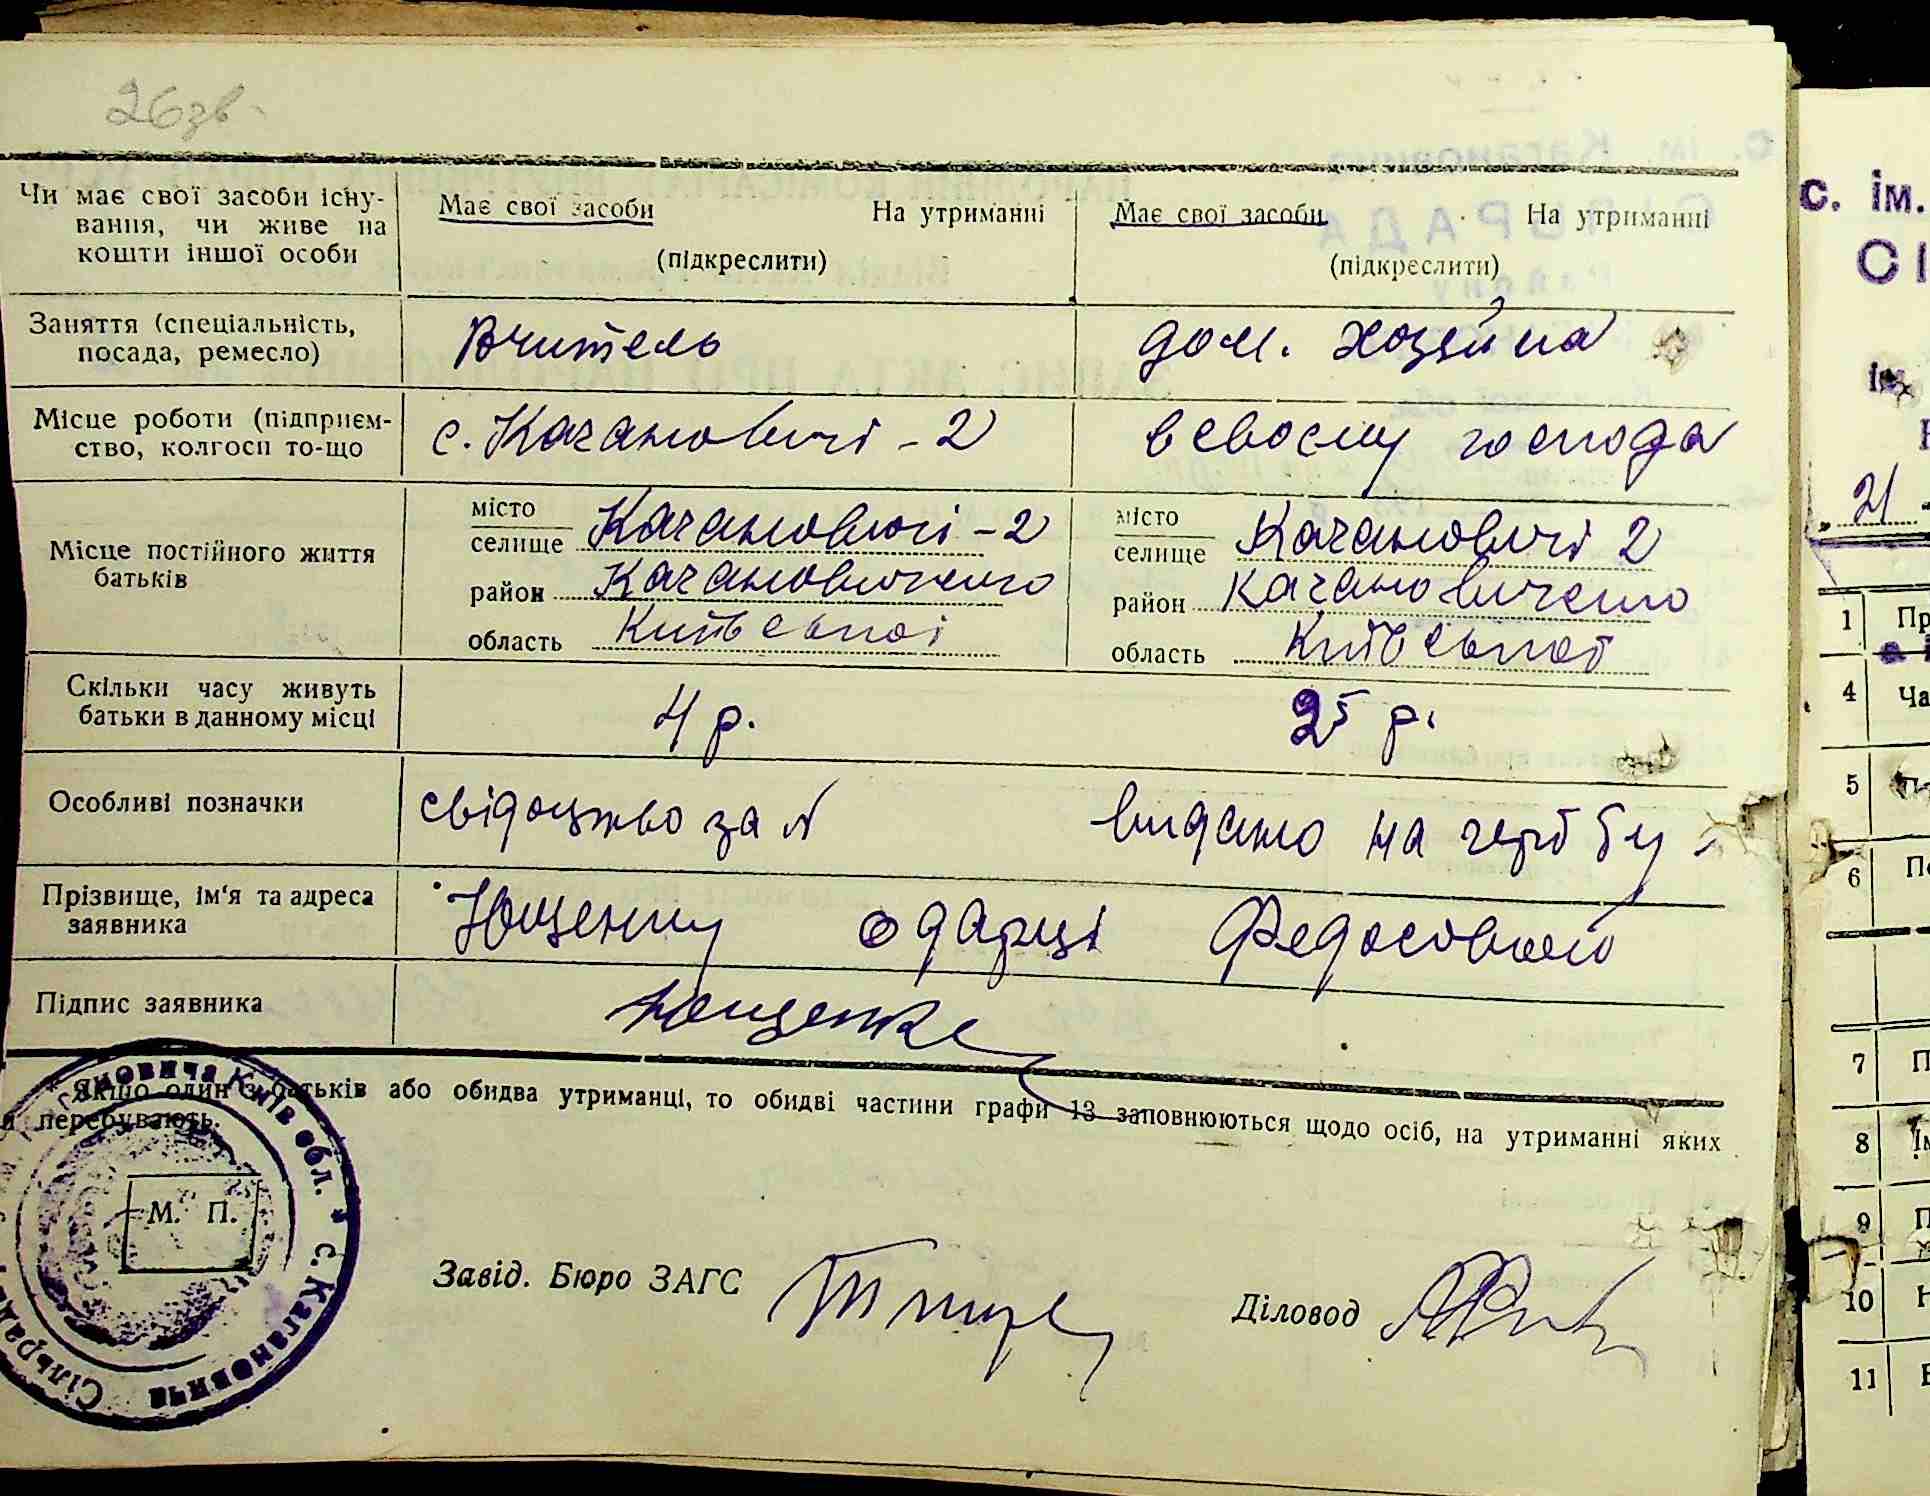 26зв.
Чи має свої засоби існу-
вання, чи живе на
кошти іншої особи
Має свої засоби На утриманні
(підкреслити)
Має свої засоби На утриманні
(підкреслити)
Заняття (спеціальність,
посада, ремесло)
Вчитель
дом. хозяйка
Місце роботи (підприєм-
ство, колгосп то-що
с. Кагановичі - 2
в своєму господа
Місце постійного життя
батьків
місто
селище Кагановичі - 2
район Кагановичського
область Київської
місто
селище Кагановичі 2
район Кагановичського
область Київської
Скільки часу живуть
батьки в данному місці
4 р.
25 р.
Особливі позначки
свідоцтво за № видано на
Прізвище, ім'я та адреса
заявника
Ющенку Одарці Федосовною
Підпис заявника
Ющенко
* Якщо один з батьків або обидва утриманці, то обидві частини графи 13 заповнюються щодо осіб, на утриманні яких
перебувають.
М. П.
Кагановича Київ обл. * с. Кагановича Сільрада
Завід. Бюро ЗАГС
Діловод
с. ім.
СІ
ім.
21
1 Пр
4 Ча
5
6 По
7 П
8 Ім
9 П
10 Н
11